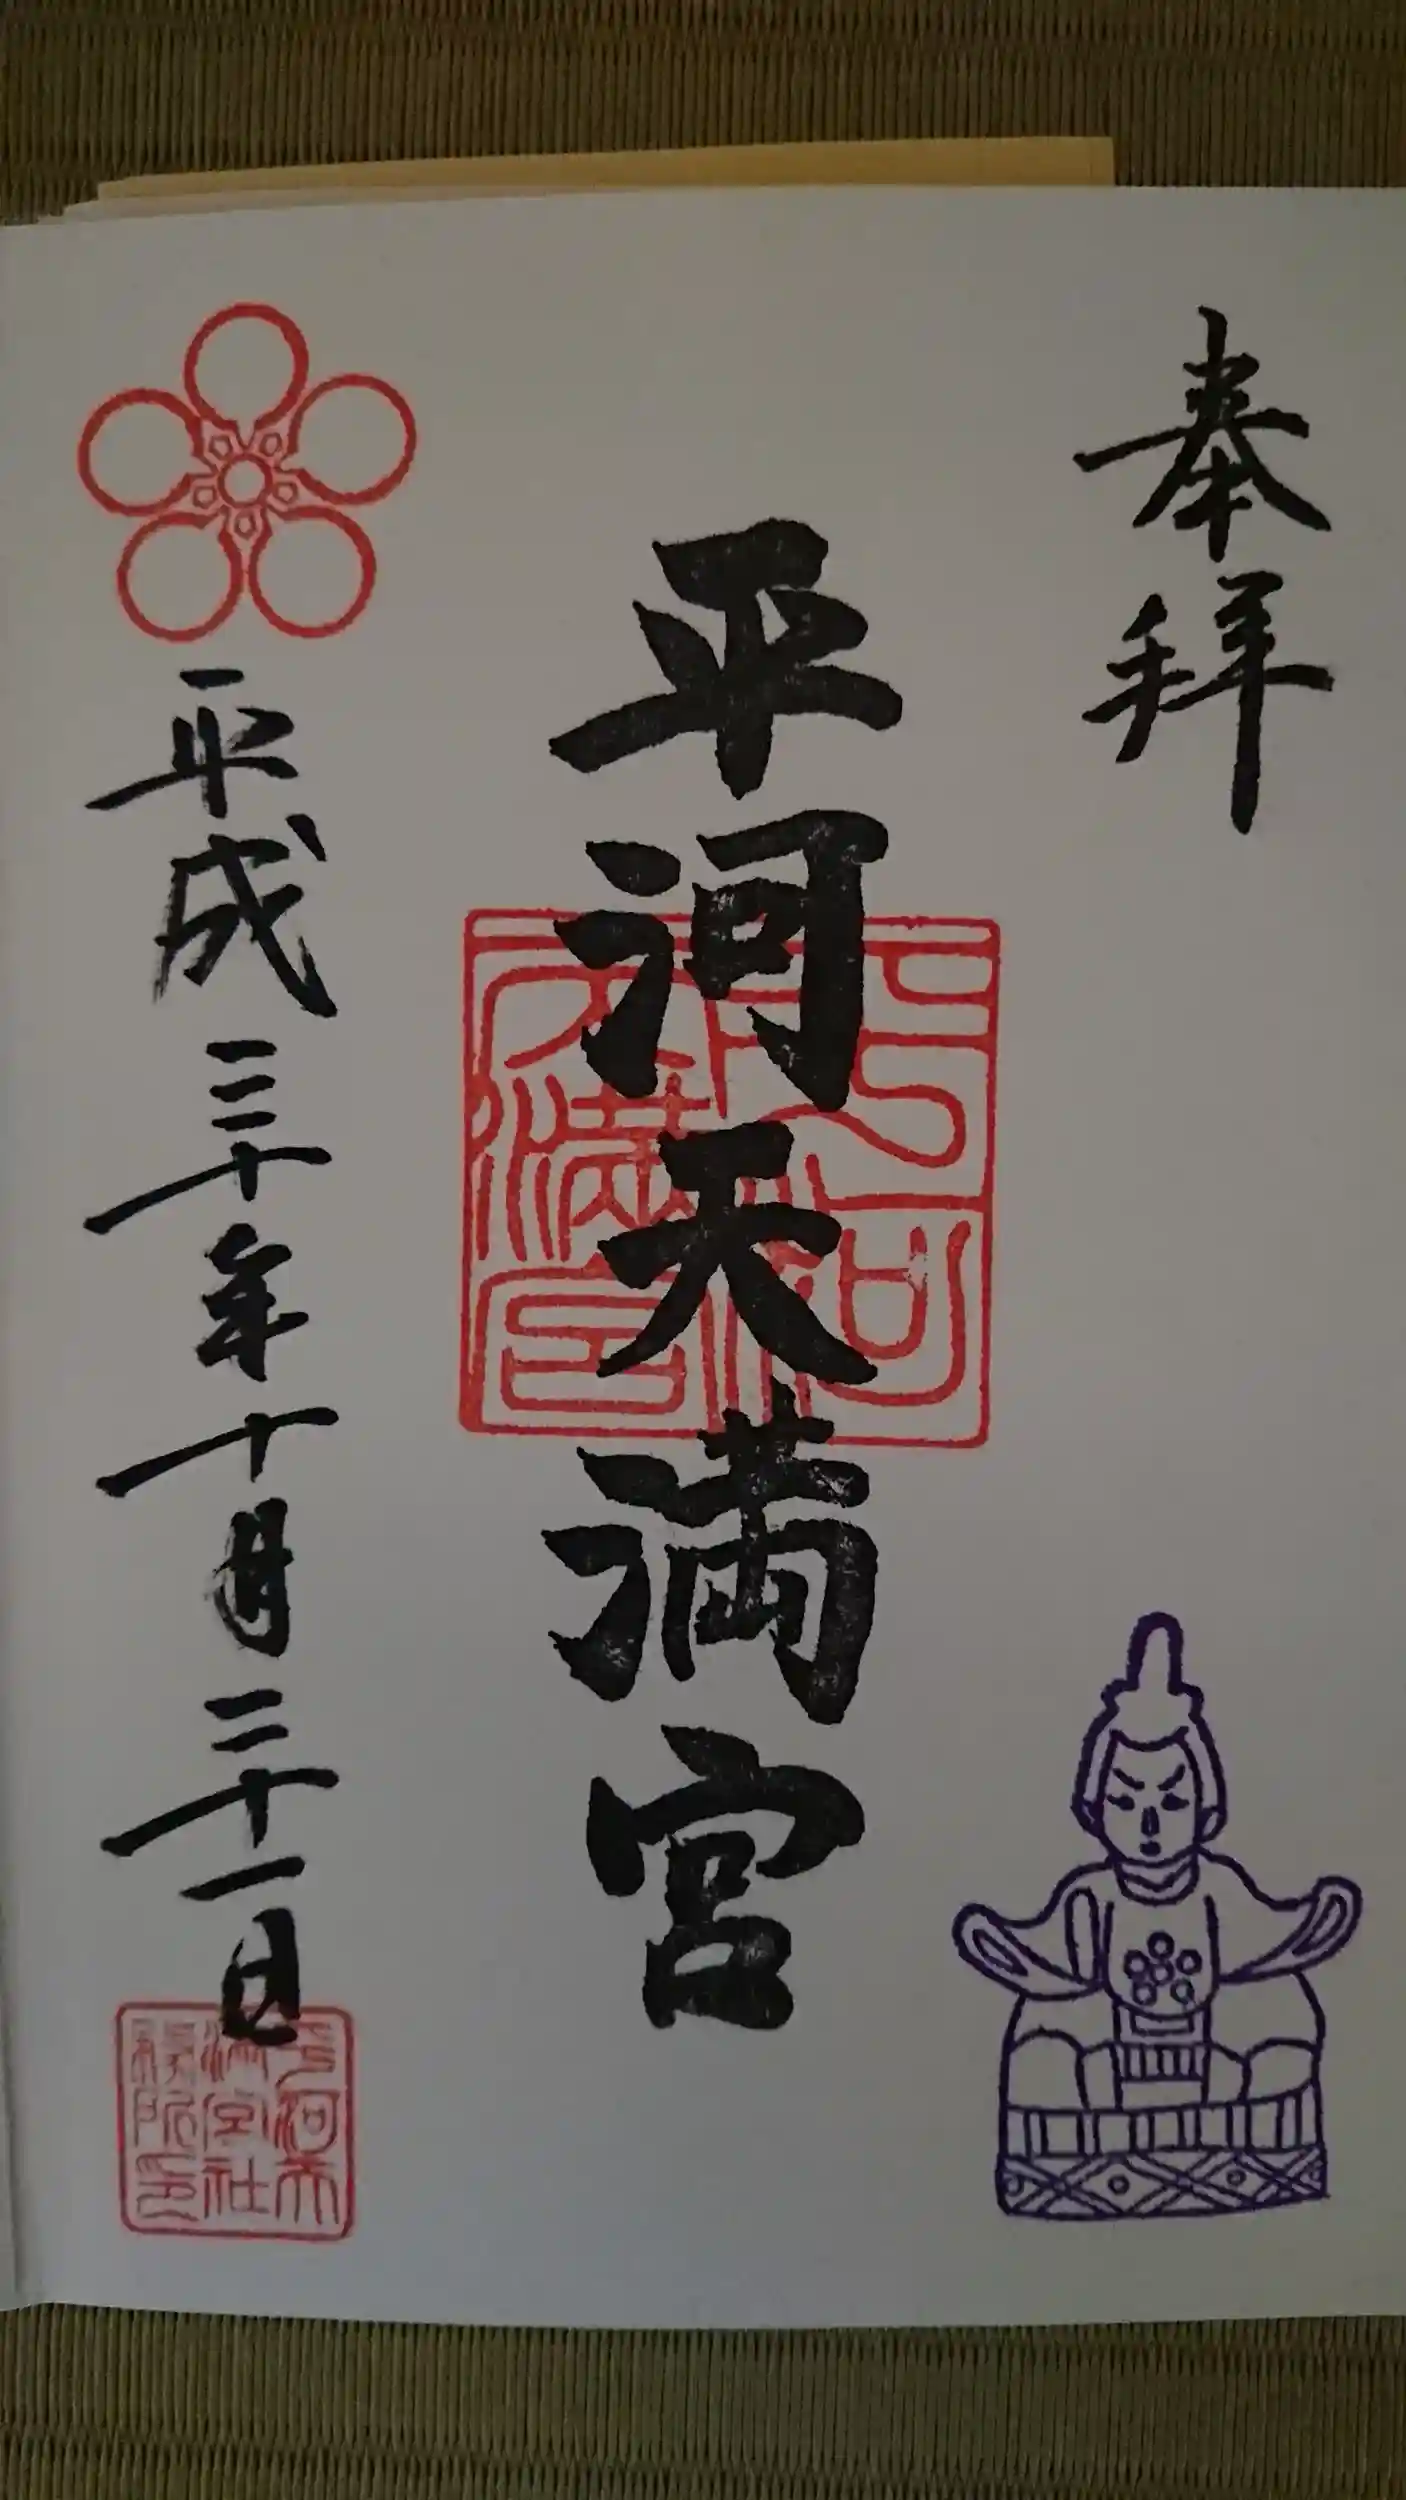 奉拝
平河天満宮
平成三十年十月三十一日
平河天満宮
平河天満宮社務所印